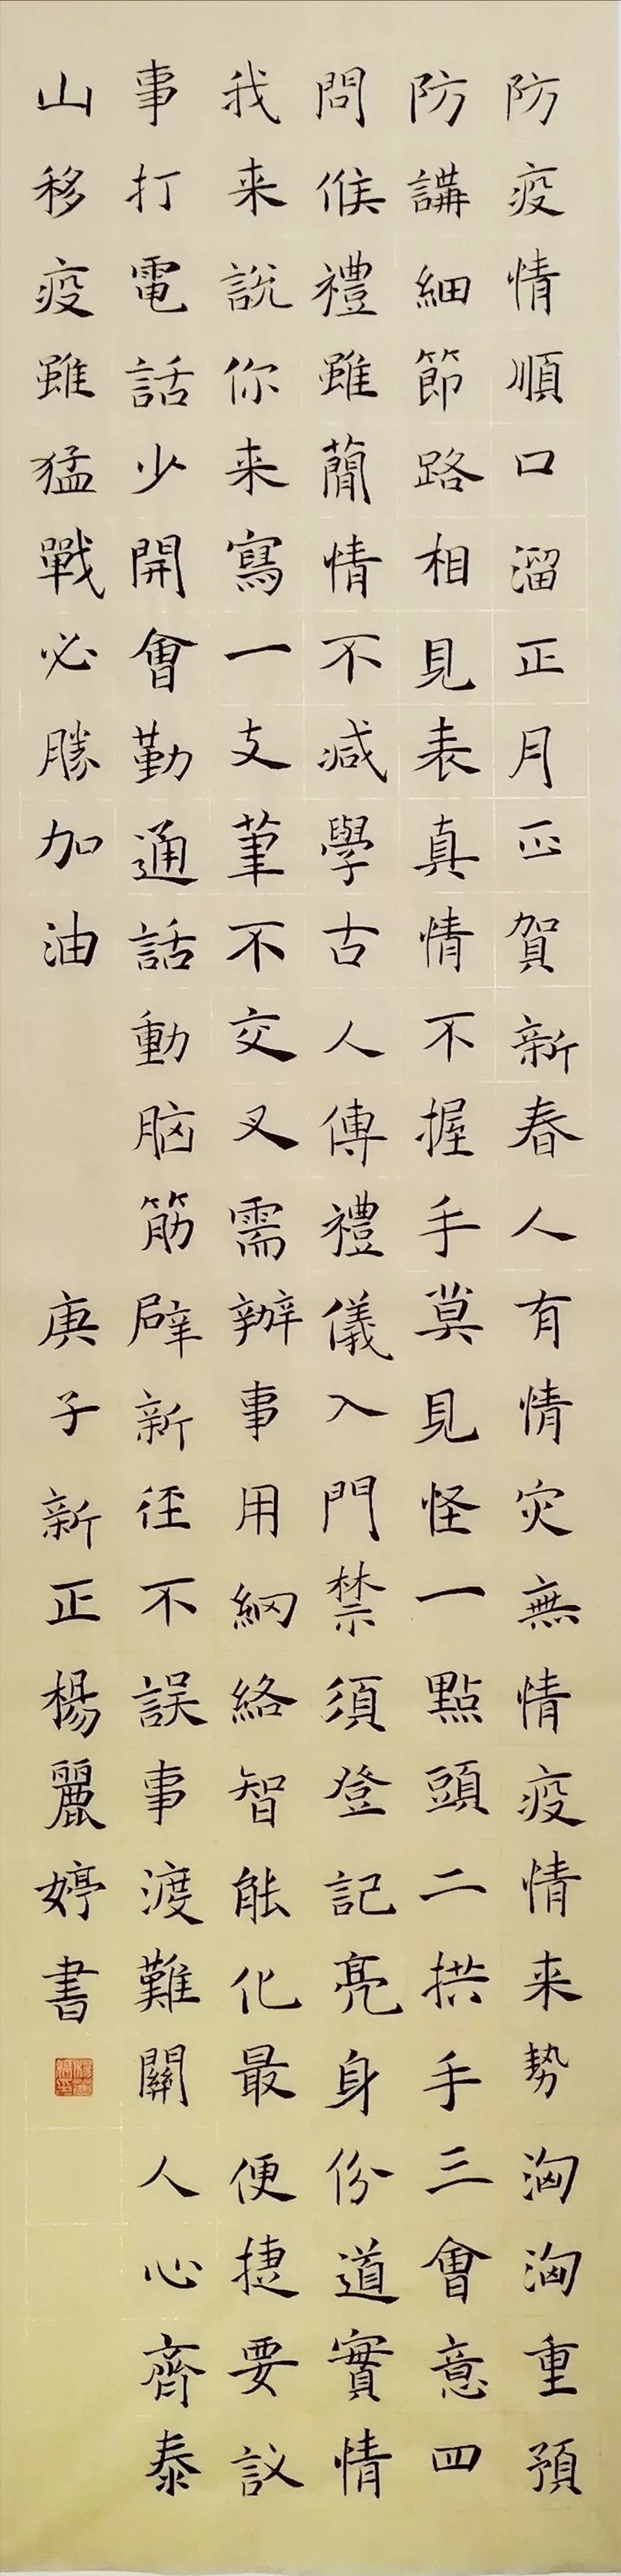 防疫情順口溜正月正賀新春人有情灾無情疫情来势洶洶重預
防講細節路相見表真情不握手莫見怪一點頭二拱手三會意四
問候禮雖蕑情不减學古人傳禮儀入門禁須登記亮身份道實情
我来說你来寫一支筆不交叉需辦事用網絡智能化最便捷要議
事打電話少開會勤通話動脑筋辟新径不誤事渡難關人心齊泰
山移疫雖猛戰必勝加油
庚子新正楊麗婷書